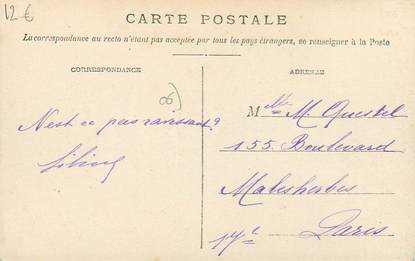 12 €
CARTE POSTALE
La correspondance au recto n'étant pas acceptée par tous les pays étrangers, se renseigner à la Poste
CORRESPONDANCE
ADRESSE
06)
N'est ce pas ravissant?
Melle M. Questel
155 Boulevard
Malesherbes
17e Paris